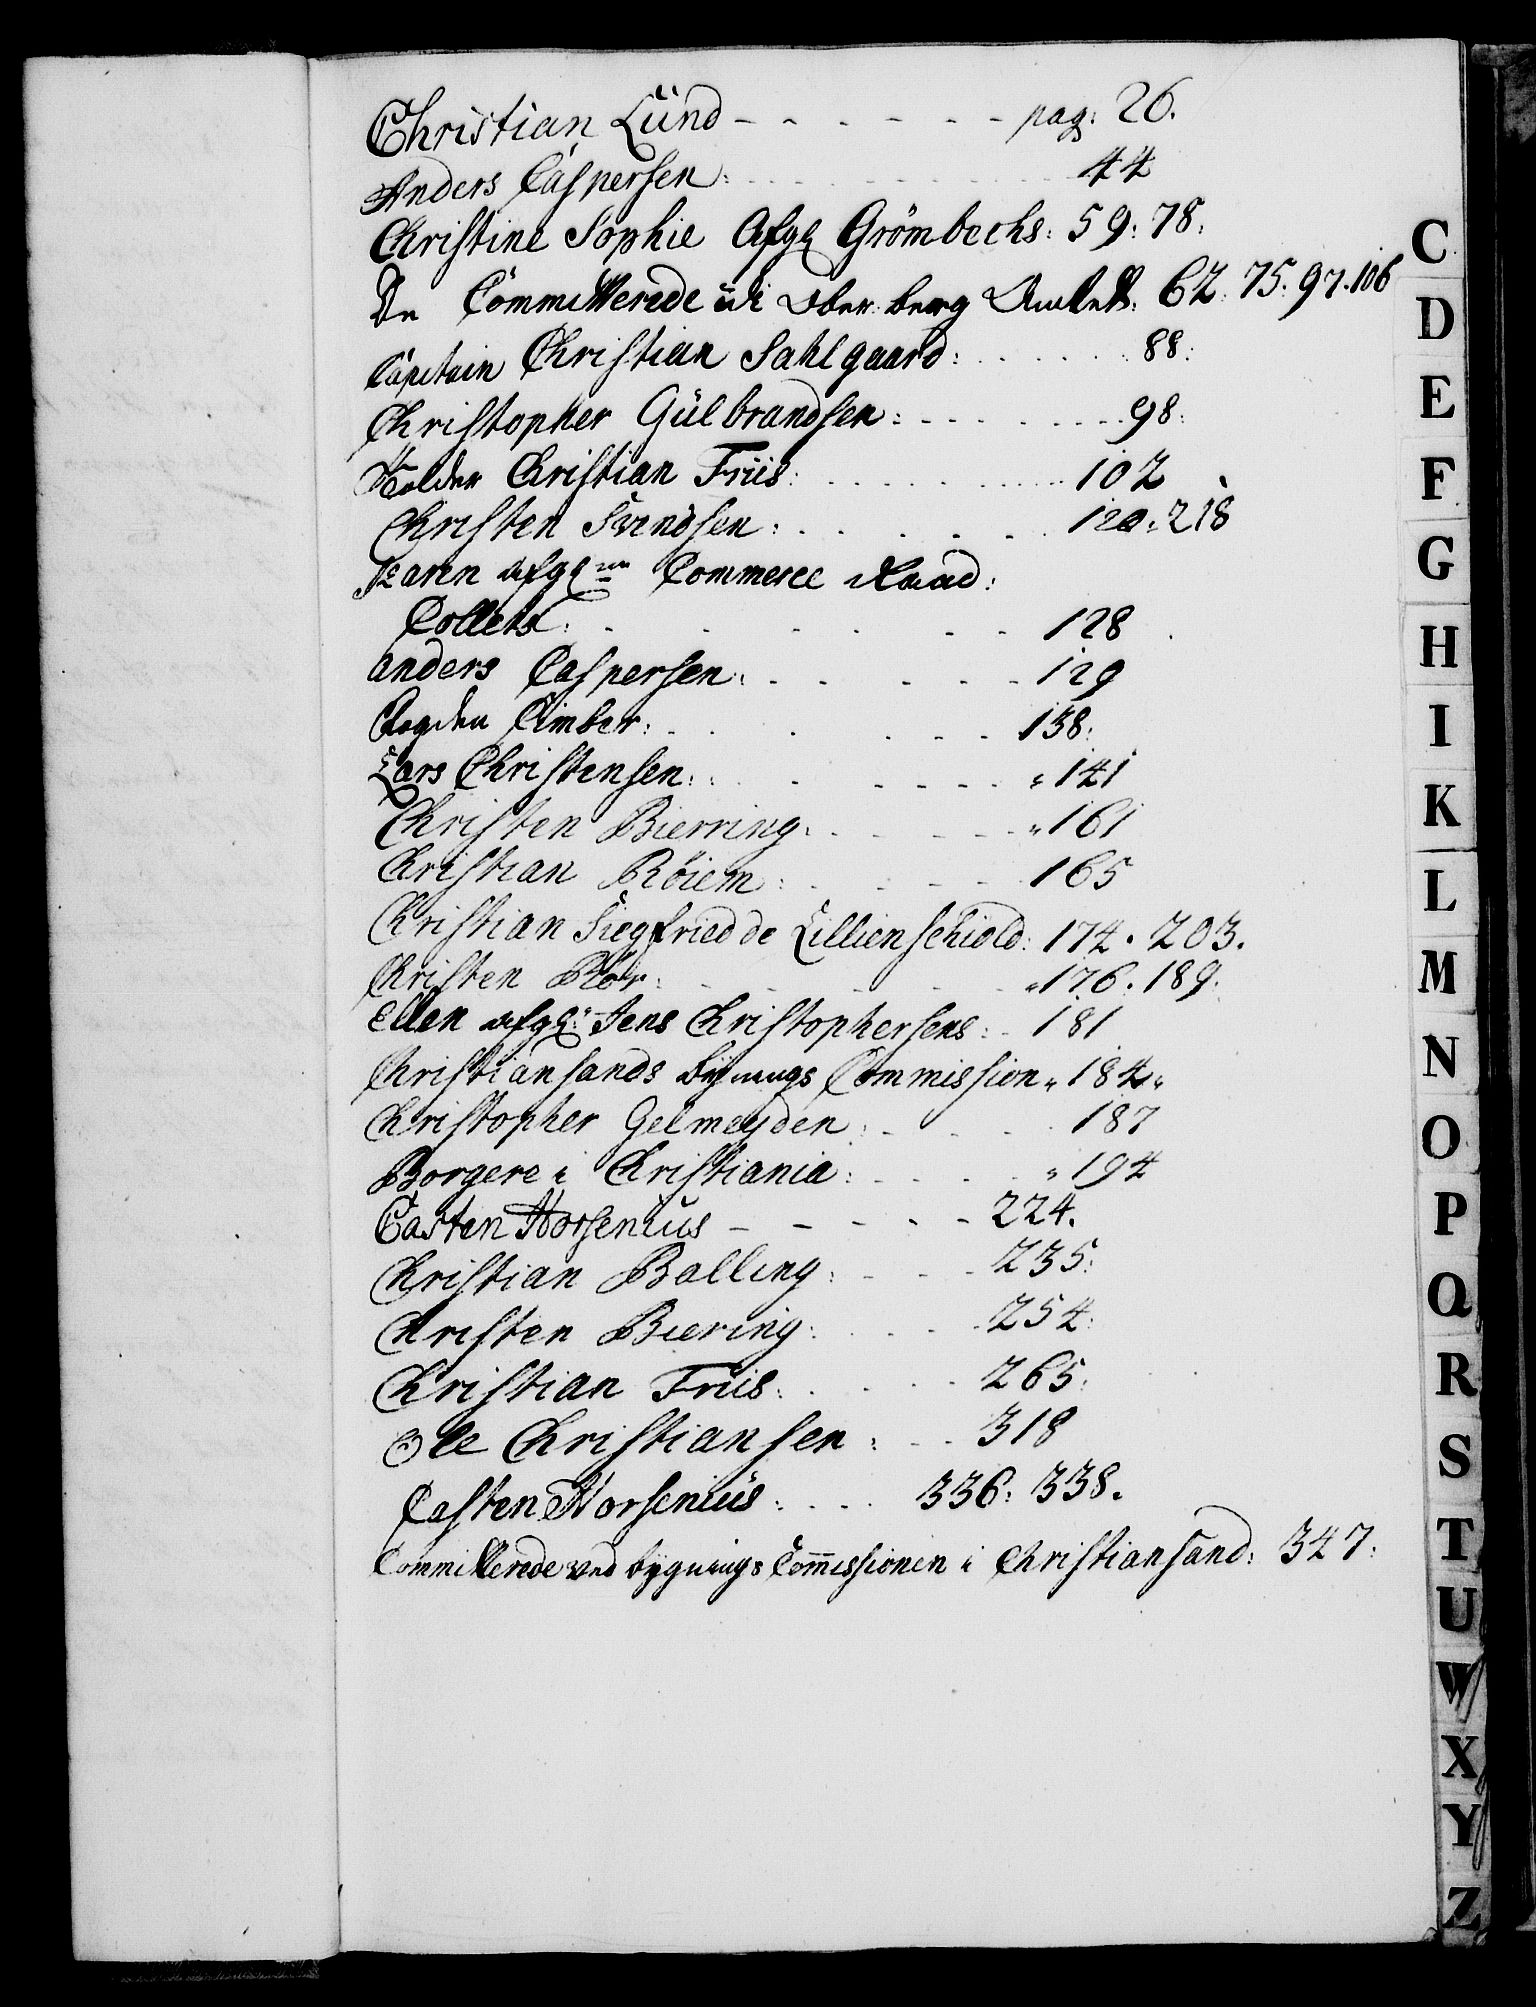 Christian Lünd - - - - - - pag: 26.
Anders Caspersen: 44
Christine Sophie Afgl Grömbechs: 59: 78:
De Committerede udi Ober berg Amtett: 62: 75: 97. 106
Capitain Christian Sahlgaard: 88:
Christopher Gülbrandsen: 98:
Christian Friis: 102
Christen Svendsen: 120: 218
Karen afgl Commerce Raad:
Colletts: 128
Anders Caspersen: 129
Fogden Cimber: 138:
Lars Christensen: 141
Christen Bierring: 161
Christian Röiem: 165
Christian Siegfried de Lillienschiold: 174. 203.
Christen Blor: 176. 189:
Ellen afgl: Jens Christophersens: 181
Christiansands bygnings Commission 184
Christopher Gelmeyden: 187
Borgere i Christiania: 194
Casten Horsenius - - - - - 224.
Christian Balling: 235:
Christen Biering: 254:
Christian Friis: 265:
Ole Christiansen: 318
Casten Horsenius: 336: 338.
Committerede ved bygnings Commissionen i Christiansand: 347:
C
D
E
F
G
H
I
K
L
M
N
O
P
Q
R
S
T
U
W
X
Y
Z